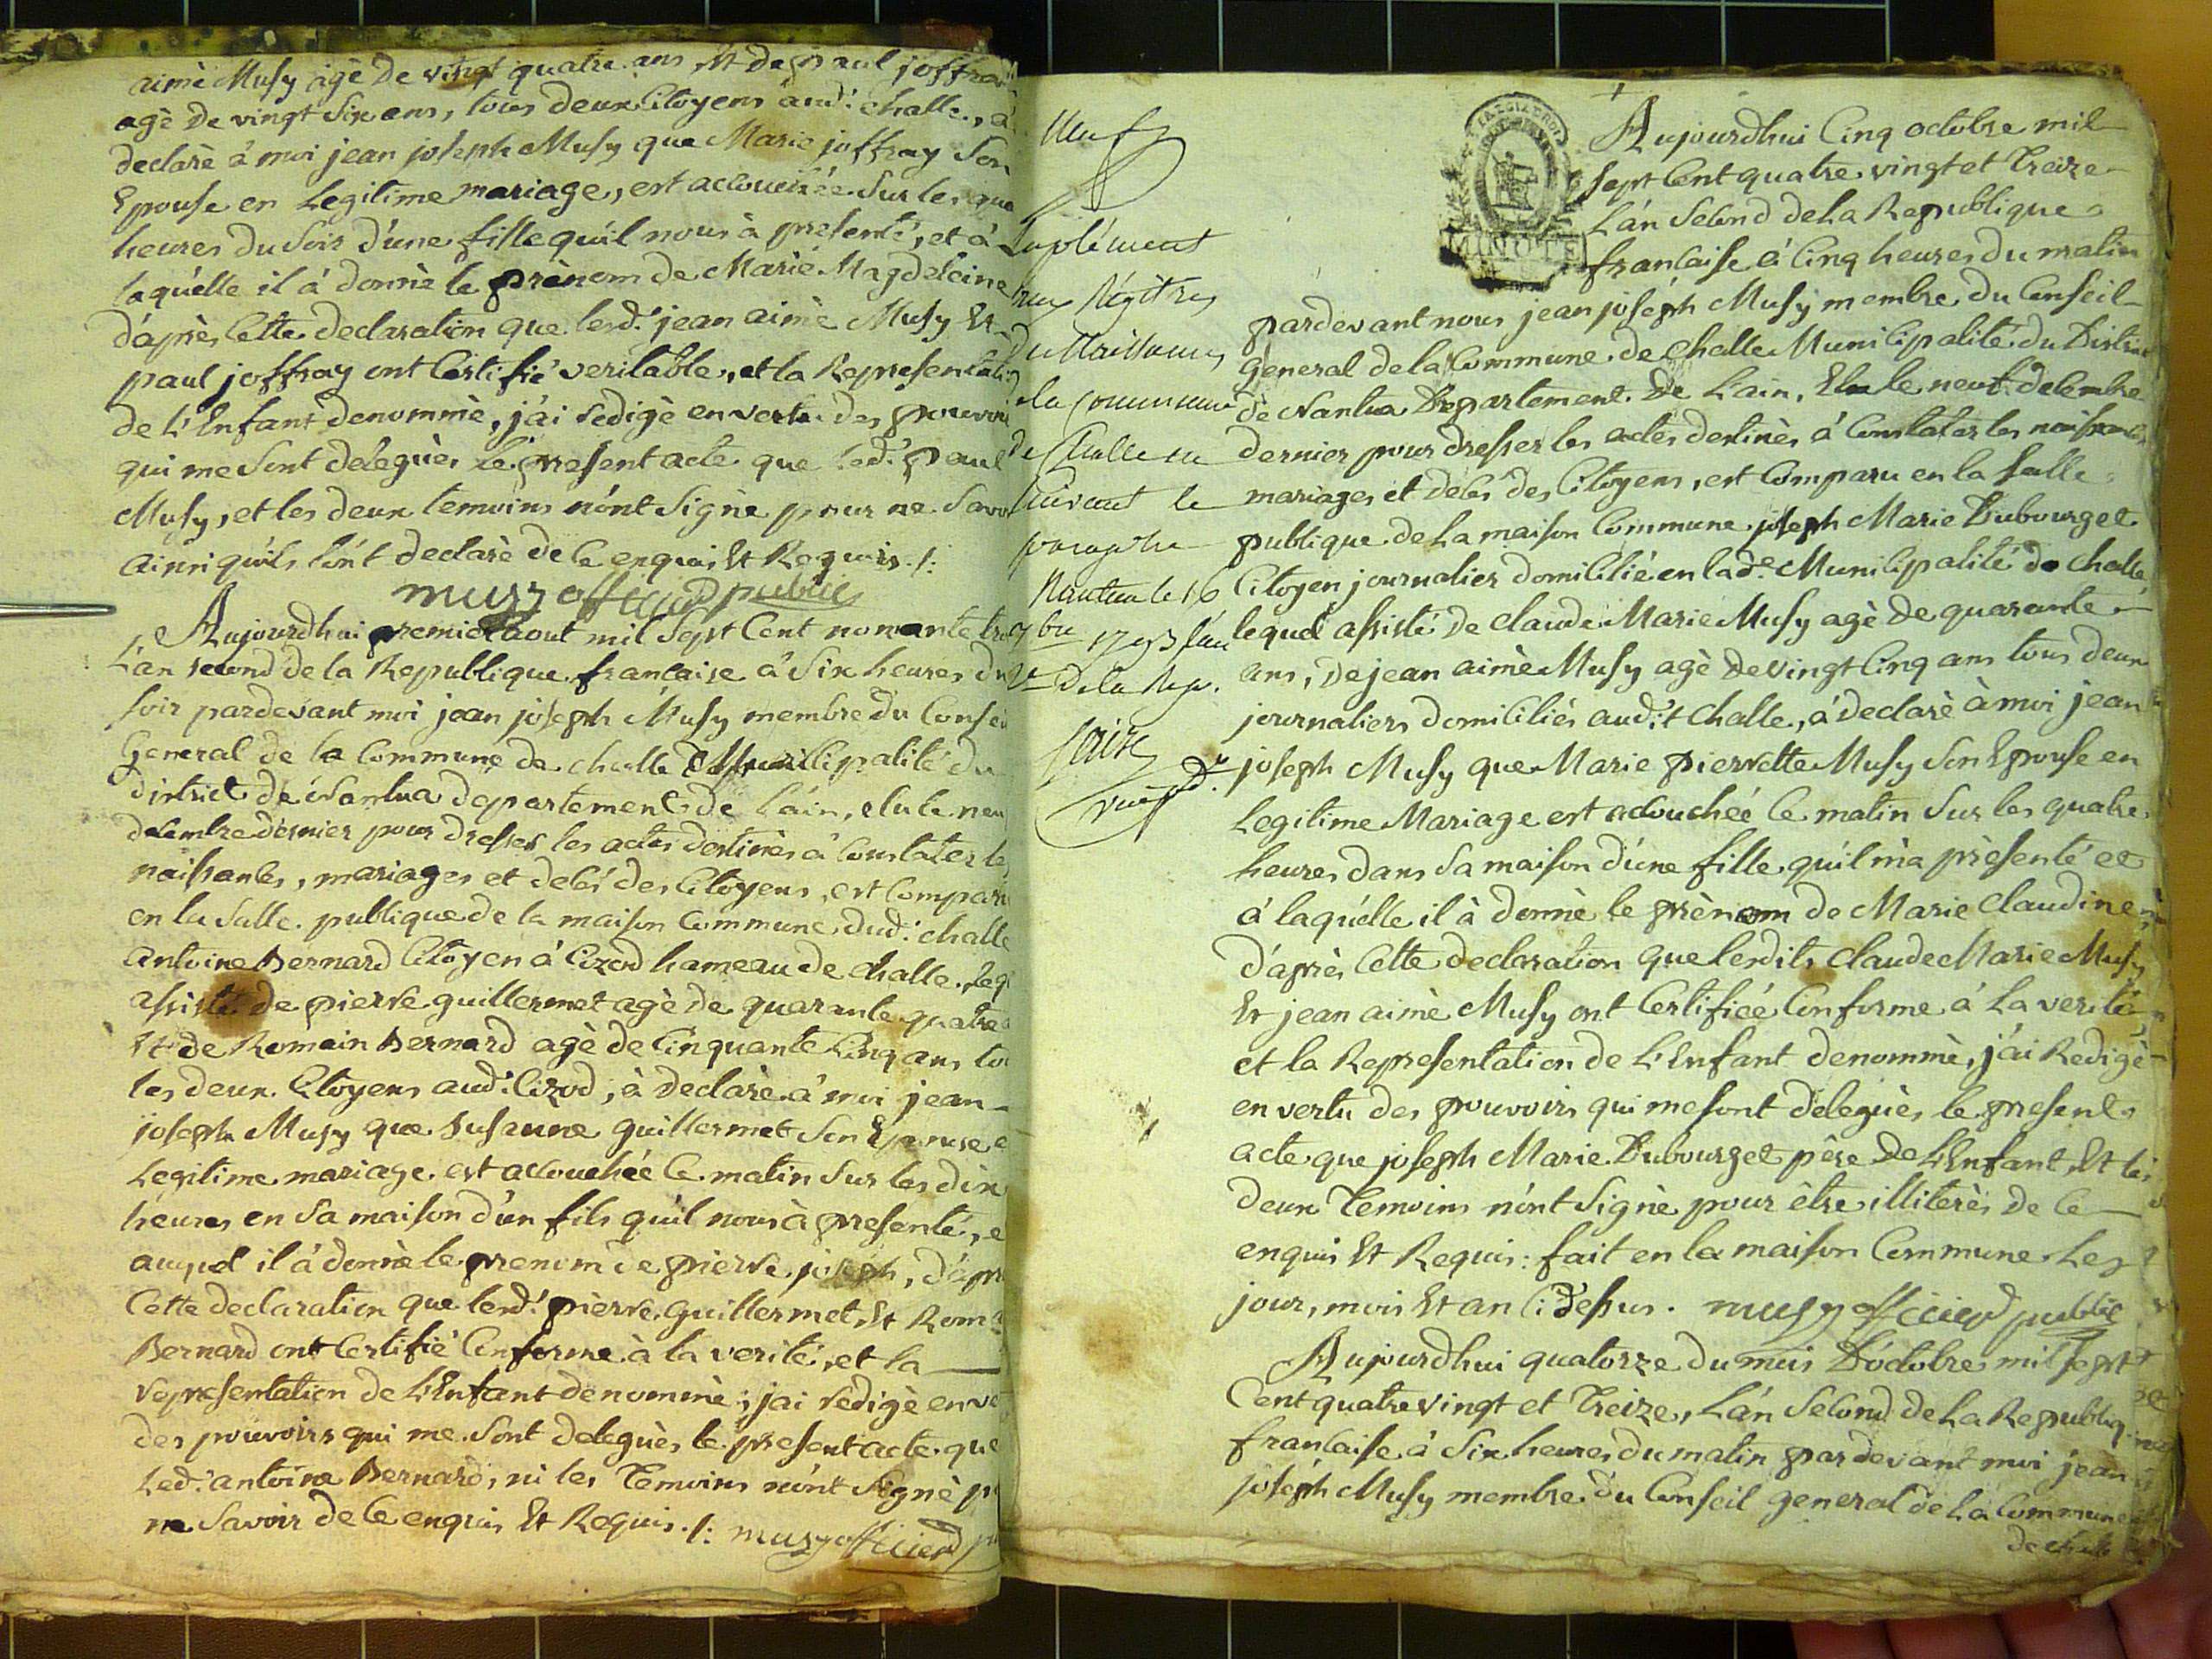 aimè Musy agè de vingt quatre ans et de paul joffray
agè de vingt Six ans, tous deux Citoyens aud.t challe, à
declarè à moi jean joseph Musy que Marie joffray Son
Epouse en Legitime mariage, est accouchée Sur les
heures du Soir d'une fille qu'il nous à presenté, et à
laquélle il à donnè le prènom de Marie Magdeleine
d'après Cette declaration que lesd.t jean aimè Musy Et
paul joffray ont Certifié veritable, et la Representation
de L'Enfant denommè, j'ai redigè en vertu des pouvoirs
qui me Sont deleguès le present acte que led.t paul
Musy, et les deux temoins n'ont Signè pour ne Savoir
ainsi qu'ils lon't declarè de Ce enquis Et Requis ./.
musy officied public
Aujourdhui premier aout mil Sept Cent nonante
L'an second de la Republique francaise à Six heures du
Soir pardevant moi jean joseph Musy membre du Conseil
General de la Commune de challe Municipalité du
district de Nantua departement de l'ain, elu le neuf
decembre dernier pour dresser les actes destinès à Constater les
naissances, mariages et decés des Citoyens, est Comparu
en la Salle publique de la maison Commune dud.t challe
antoine Bernard Citoyen à Cizod hameau de challe, lequel
assisté de pierre guillermet agè de quarante quatre
Et de Romain Bernard agè de Cinquante Cinq ans tous
les deux Citoyens aud.t Cizod, à declarè à moi jean
joseph Musy que Susanne guillermet Son Epouse en
Legitime mariage est accouchée Ce matin Sur les dix
heures en Sa maison d'un fils qu'il nous à presenté, et
auquel il à donnè le prenom de pierre joseph, d'après
Cette declaration que lesd.t pièrre guillermet Et Romain
Bernard ont Certifié Conforme à la verité, et la
representation de L'Enfant denommè; j'ai redigè en vertu
des pouvoirs qui me Sont deleguès le present acte que
Led.t antoine Bernard, ni les Temoins n'ont Signè pour
ne Savoir de Ce enquis Et Requis ./. musy officied
neuf
Suplément
aux Régitres
de Naissances
de la Commune
de Challe en
suivant le
paraphe
Nantua le 16
7bre 1793 l'an
2e de la Rep.
MINUTE
Aujourdhui Cinq octobre mil
Sept Cent quatre vingt et Treize
L'án Second de La Republique
francaise à Cinq heures du matin
pardevant nous jean joséph Musy membre du Conseil
General de la Commune de challe Municipalité du District
de Nantua Departement De Lain, Elu le neuf decembre
dernier pour dresser les actes destinès à Constater les naissances
mariages et decés des Citoyens, est Comparu en la Salle
publique de la maison Commune joseph Marie Dubourget
Citoyen journalier domicilié en lade. Municipalité de challe
lequel assisté de claude Marie Musy agè de quarante
ans, de jean aimè Musy agè de vingt Cinq ans tous deux
journaliers domiciliés audit challe, à declarè à moi jean
joseph Musy que Marie pierrette Musy Son Epouse en
Legitime Mariage est accouchée Ce matin Sur les quatre
heures dans Sa maison d'une fille qu'il m'a prèsenté et
à laquélle il à donnè le prènom de Marie Claudine,
d'après Cette declaration que lesdits claude Marie Musy
Et jean aimè Musy ont Certifiéé Conforme à La verité,
et la Representation de L'Enfant denommè, j'ai Redigè
en vertu des pouvoirs qui me sont deleguès le present
acte que joseph Marie Dubourget père de L'Enfant Et les
deux Temoins n'ont Signè pour être illiterès de Ce
enquis Et Requis: fait en la maison Commune Les
jour, mois Et an Ci dessus. musy officied public
Aujourdhui quatorze du mois D'octobre mil Sept
Cent quatre vingt et Treize, L'án Second de La Republiq.
francaise à Six heures du matin pardevant moi jean
joséph Musy membre du Conseil general de La Commune
de challe